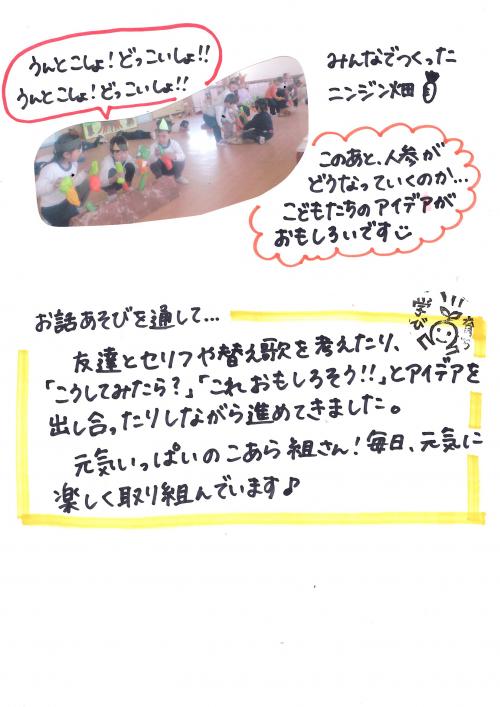 うんとこしょ!どっこいしょ!!
うんとこしょ!どっこいしょ!!
みんなでつくった
ニンジン畑
このあと、人参が
どうなっていくのか…
こどもたちのアイデアが
おもしろいです
お話あそびを通して…
学び
友達とセリフや替え歌を考えたり、
「こうしてみたら?」「これおもしろそう!!」とアイデアを
出し合ったりしながら進めてきました。
元気いっぱいのこあら組さん!毎日、元気に
楽しく取り組んでいます♪